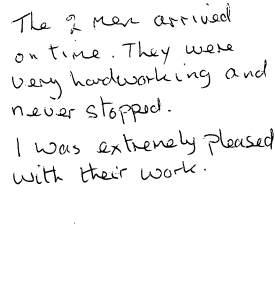 The 2 men arrived
on time. They were
very hardworking and
never stopped.
I was extremely pleased
with their work.